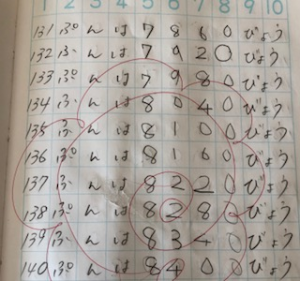 1 2 3 4 5 6 7 8 9 10
131 ぷんは 7860 びょう
132 ふんは 7920 びょう
133 ぷんは 7980 びょう
134 ふんは 8040 びょう
135 ふんは 8100 びょう
136 ぷんは 8160 びょう
137 ふんは 8220 びょう
138 ぷんは 8280 びょう
139 ふんは 8340 びょう
140 ぷんは 8400 びょう